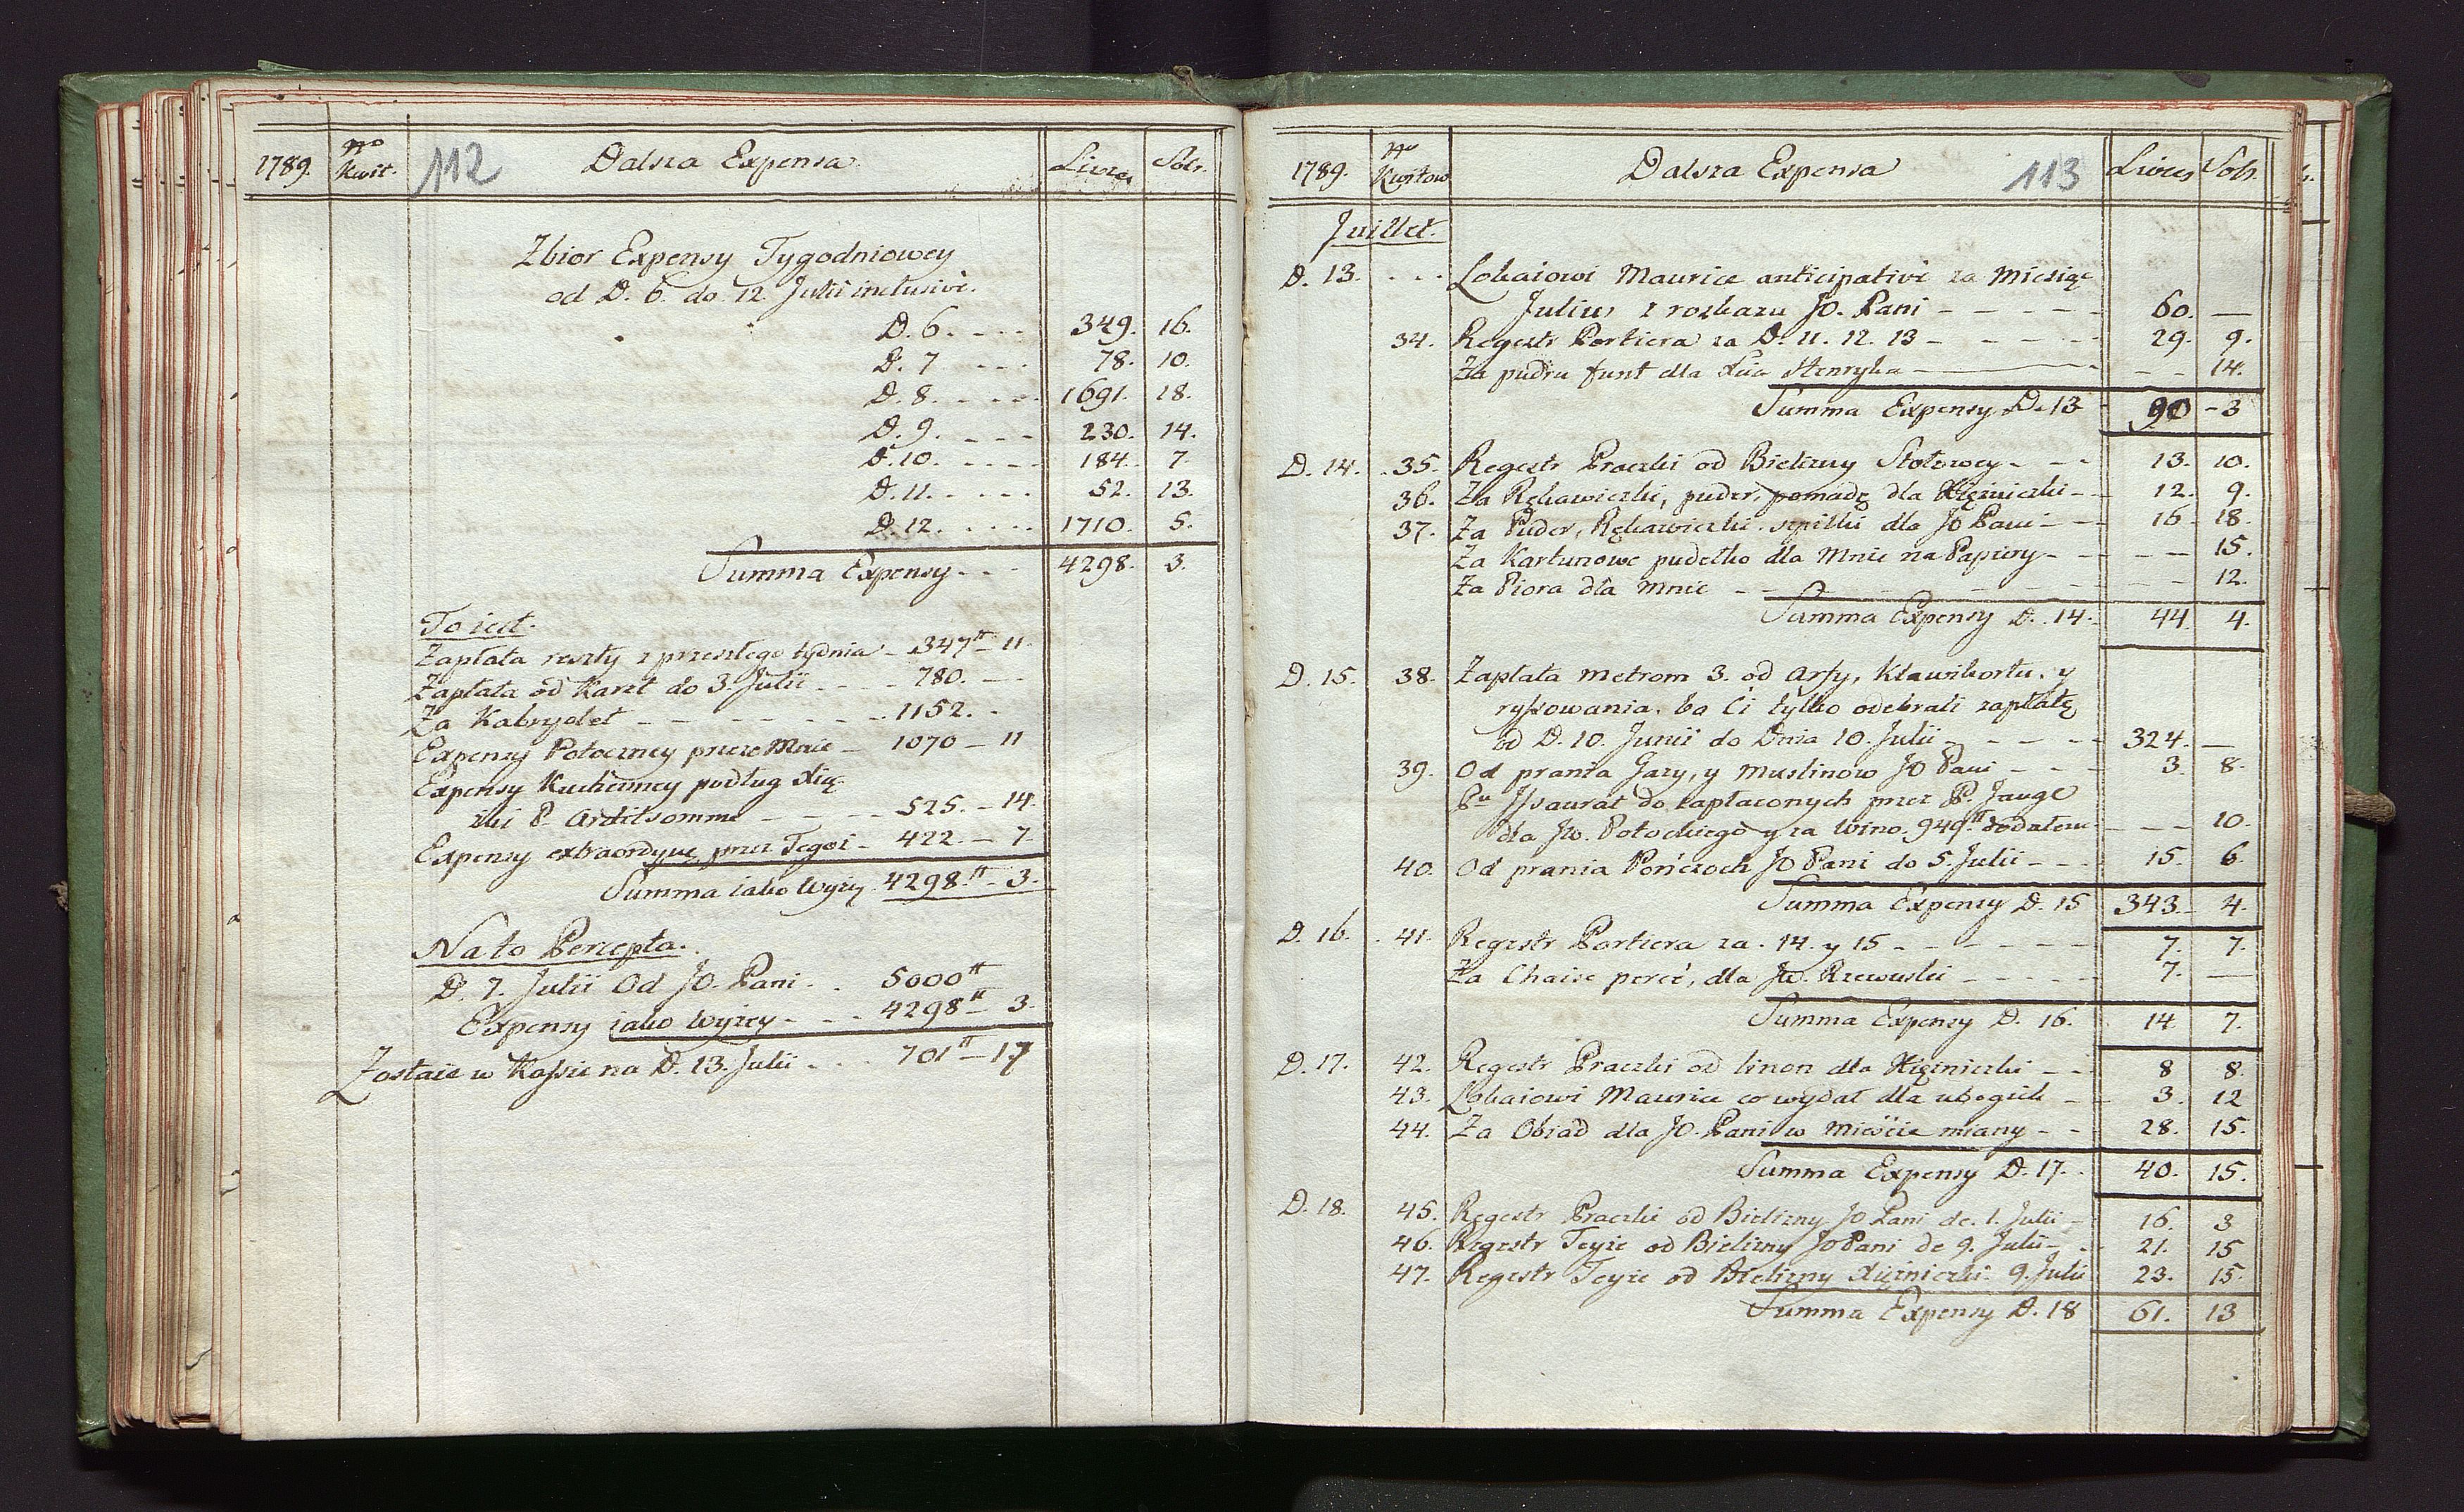 1789. No Kwit. 112 Dalsza Expensa Livres Sols.
Zbior Expensy Tygodniowey
od D. 6. do 12. Julii inclusive.
D. 6. 349. 16.
D. 7 78. 10.
D. 8. 1691. 18.
D. 9. 230. 14.
D. 10. 184. 7.
D. 11. 52. 13.
D. 12. 1710. 5.
Summa Expensy 4298. 3.
To iest.
Zapłata reszty z przeszłego tydnia 347tt 11.
Zapłata od Karet do 3. Julii 780.
Za Kabryolet 1152.
Expensy Potoczney przeze Mnie 1070 11
Expensy Kuchenney podług Xią-
żki P. Ardilsomme 525. 14.
Expensy extraordyney przez Tegoż 422. 7.
Summa iako Wyżey 4298tt 3.
Na to Percepta.
D. 7. Julii Od JO. Pani 5000tt
Expensy iako wyżey 4298tt 3.
Zostaie w Kassie na D. 13. Julii 701tt 17
1789. No Kwitow Dalsza Expensa 113 Livres Sols.
Juillet.
D. 13. Lokaiowi Maurice anticipative za Miesiąc
Julius z rozkazu JO. Pani 60.
34. Regestr Portiera za D. 11. 12. 13 29. 9.
Za pudru funt dla Xcia Henryka 14.
Summa Expensy D. 13 90 3
D. 14. 35. Regestr Praczki od Bielizny Stołowey 13. 10.
36. Za Rękawiczki, puder, pomadę dla Xiężniczki 12. 9.
37. Za Puder, Rękawiczki, szpilki dla JO Pani 16 18.
Za Kartunowe pudełko dla Mnie na Papiery 15.
Za Piora dla Mnie 12.
Summa Expensy D. 14. 44 4.
D. 15. 38. Zapłata metrom 3. od Arfy, Klawikortu, y
ryssowania. ba Ci tylko odebrali zapłatę
od D. 10. Junii do Dnia 10. Julii 324.
39. Od prania Gazy, y Muslinow JO Pani 3. 8.
Pu Issaurat do zapłaconych przez P. Jauge
dla Jw. Potockiego y za Wino. 949tt dodałem 10.
40. Od prania Pończoch JO Pani do 5. Julii 15. 6.
Summa Expensy D. 15 343. 4.
D. 16. 41. Regestr Portiera za 14. y 15 7. 7.
Za Chaise percé, dla Jw. Rzewuski 7.
Summa Expensy D. 16. 14 7.
D. 17. 42. Regestr Praczki od linon dla Xiężniczki 8 8.
43. Lokaiowi Maurice co wydał dla ubogich 3. 12
44. Za Obiad dla JO. Pani w Mieście miany 28. 15.
Summa Expensy D. 17. 40. 15.
D. 18. 45. Regestr Praczki od Bielizny JO Pani de. 1. Julii 16. 3
46. Regestr Teyże od Bielizny JO Pani de 9. Julii 21. 15
47. Regestr Teyże od Bielizny Xiężniczki 9. Julii 23. 15.
Summa Expensy D. 18 61. 13